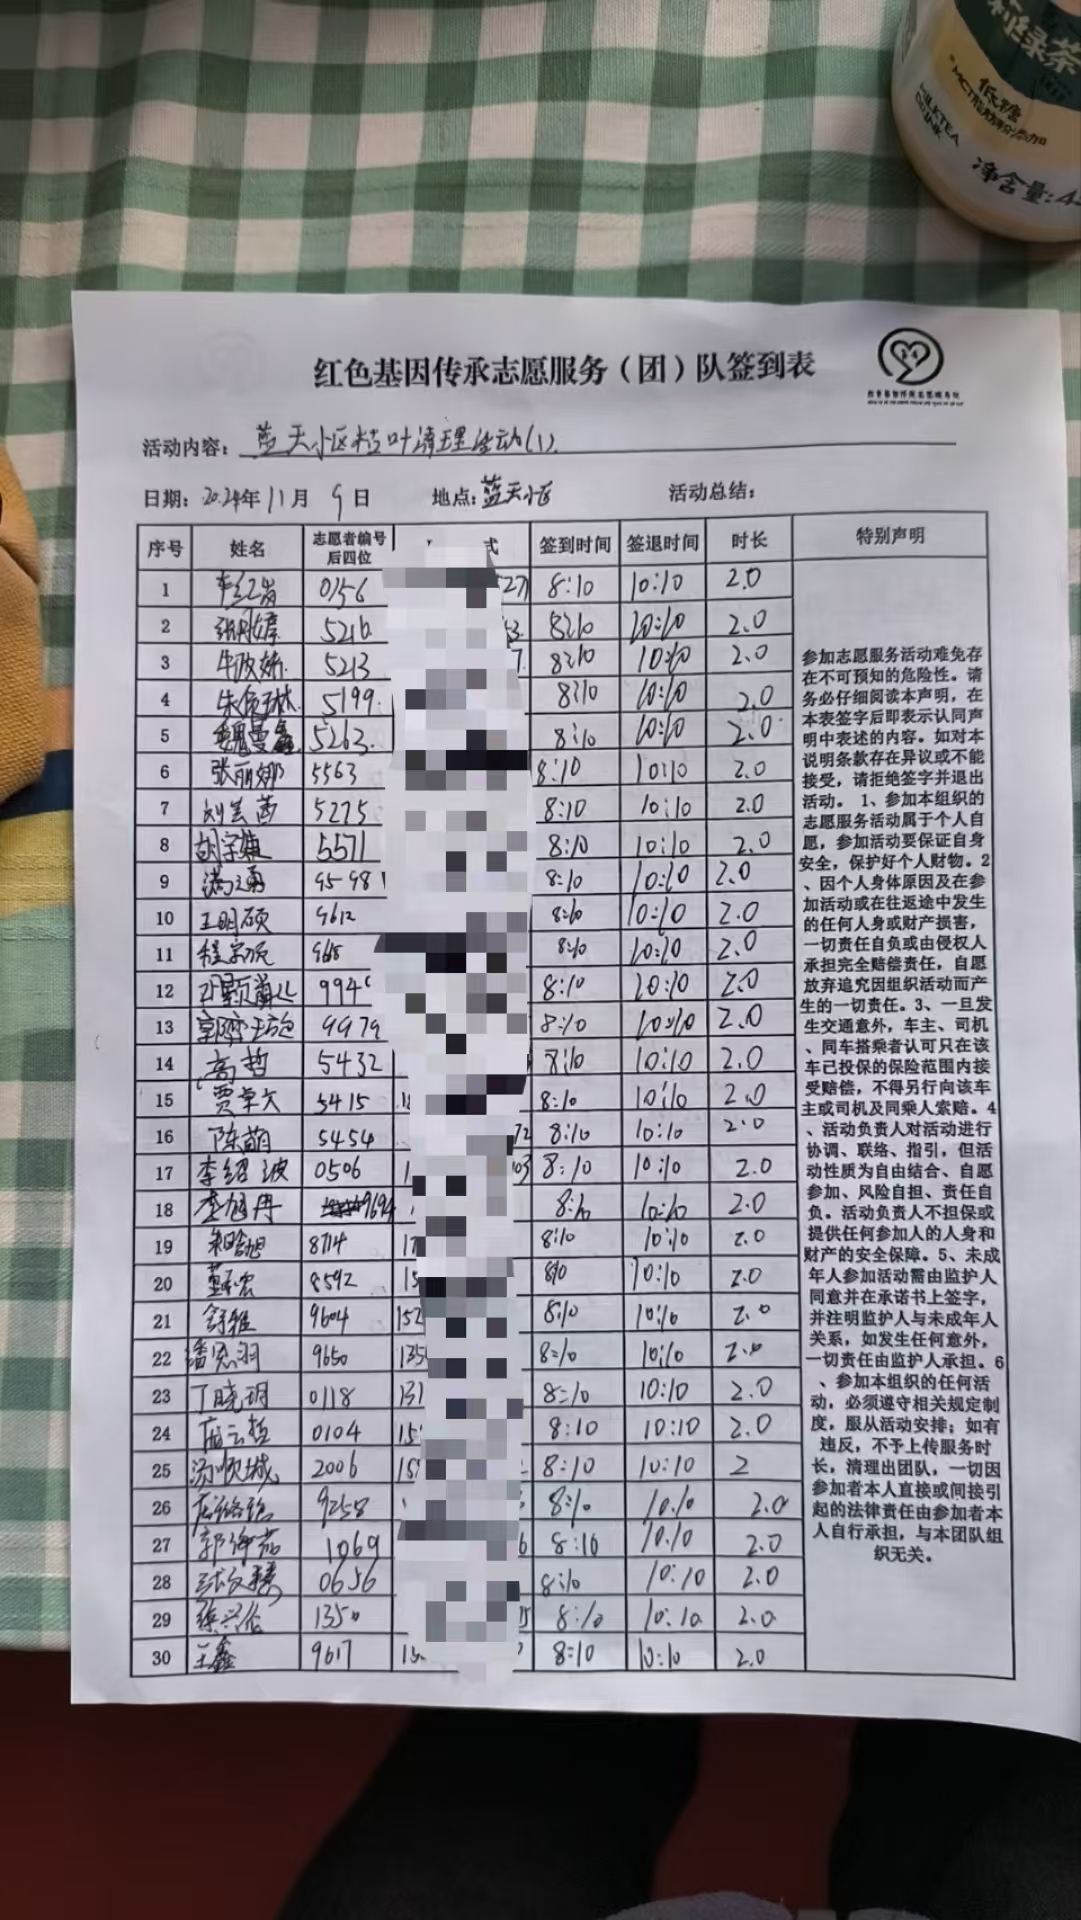 绿茶
低糖
MCT
添加
MILKTEA
DRINK
净含量:4
红色基因传承志愿服务（团）队签到表
活动内容: 蓝天小区枯叶清理活动(1)
日期: 2024年11月9日 地点: 蓝天小区 活动总结:
序号 姓名 志愿者编号后四位 式 签到时间 签退时间 时长 特别声明
1 0156 27 8:10 10:10 2.0
2 5216 8:10 10:10 2.0
3 5213 7 8:10 10:10 2.0
4 5199 8:10 10:10 2.0
5 魏曼鑫 5263 8:10 10:10 2.0
6 张丽娜 5563 8:10 10:10 2.0
7 刘芸茜 5275 8:10 10:10 2.0
8 5571 8:10 10:10 2.0
9 9598 8:10 10:10 2.0
10 王明硕 9612 8:10 10:10 2.0
11 8:10 10:10 2.0
12 994 8:10 10:10 2.0
13 9979 8:10 10:10 2.0
14 高哲 5432 8:10 10:10 2.0
15 贾卓文 5415 8:10 10:10 2.0
16 陈萌 5454 72 8:10 10:10 2.0
17 李绍波 0506 1 03 8:10 10:10 2.0
18 李旭冉 9694 8:10 10:10 2.0
19 8714 17 8:10 10:10 2.0
20 8592 15 8:10 10:10 2.0
21 舒雅 9604 152 8:10 10:10 2.0
22 潘思羽 9650 135 8:10 10:10 2.0
23 丁晓玥 0118 131 8:10 10:10 2.0
24 0104 15 8:10 10:10 2.0
25 汤顺城 2006 15 8:10 10:10 2
26 9258 8:10 10:10 2.0
27 1069 6 8:10 10:10 2.0
28 0656 8:10 10:10 2.0
29 张兴伦 1350 8:10 10:10 2.0
30 王鑫 9617 15 8:10 10:10 2.0
参加志愿服务活动难免存
在不可预知的危险性。请
务必仔细阅读本声明，在
本表签字后即表示认同声
明中表述的内容。如对本
说明条款存在异议或不能
接受，请拒绝签字并退出
活动。1、参加本组织的
志愿服务活动属于个人自
愿，参加活动要保证自身
安全，保护好个人财物。2
、因个人身体原因及在参
加活动或在往返途中发生
的任何人身或财产损害，
一切责任自负或由侵权人
承担完全赔偿责任，自愿
放弃追究因组织活动而产
生的一切责任。3、一旦发
生交通意外，车主、司机
、同车搭乘者认可只在该
车已投保的保险范围内接
受赔偿，不得另行向该车
主或司机及同乘人索赔。4
、活动负责人对活动进行
协调、联络、指引，但活
动性质为自由结合、自愿
参加、风险自担、责任自
负。活动负责人不担保或
提供任何参加人的人身和
财产的安全保障。5、未成
年人参加活动需由监护人
同意并在承诺书上签字，
并注明监护人与未成年人
关系，如发生任何意外，
一切责任由监护人承担。6
、参加本组织的任何活
动，必须遵守相关规定制
度，服从活动安排；如有
违反，不予上传服务时
长，清理出团队，一切因
参加者本人直接或间接引
起的法律责任由参加者本
人自行承担，与本团队组
织无关。